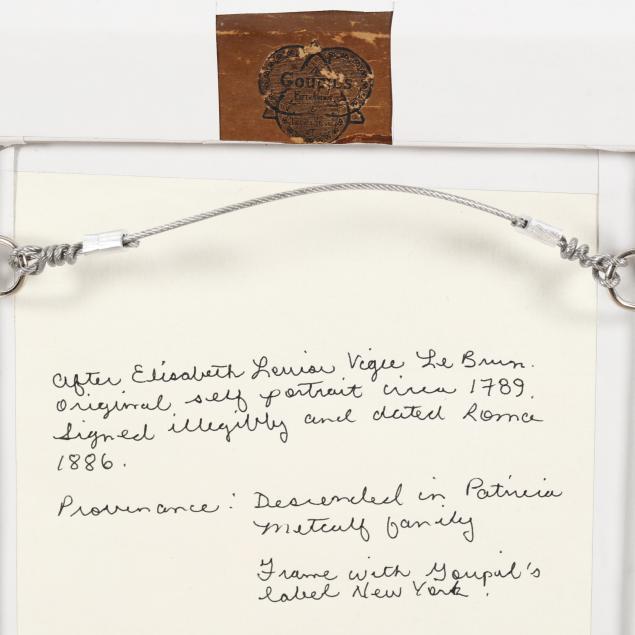 GOUPIL'S
after Elisabeth Louise Vigee Le Brun.
Original self portrait circa 1789.
Signed illegibly and dated Roma
1886.
Provenance: Descended in Patricia
Metcalf family
Frame with Goupil's
label New York.